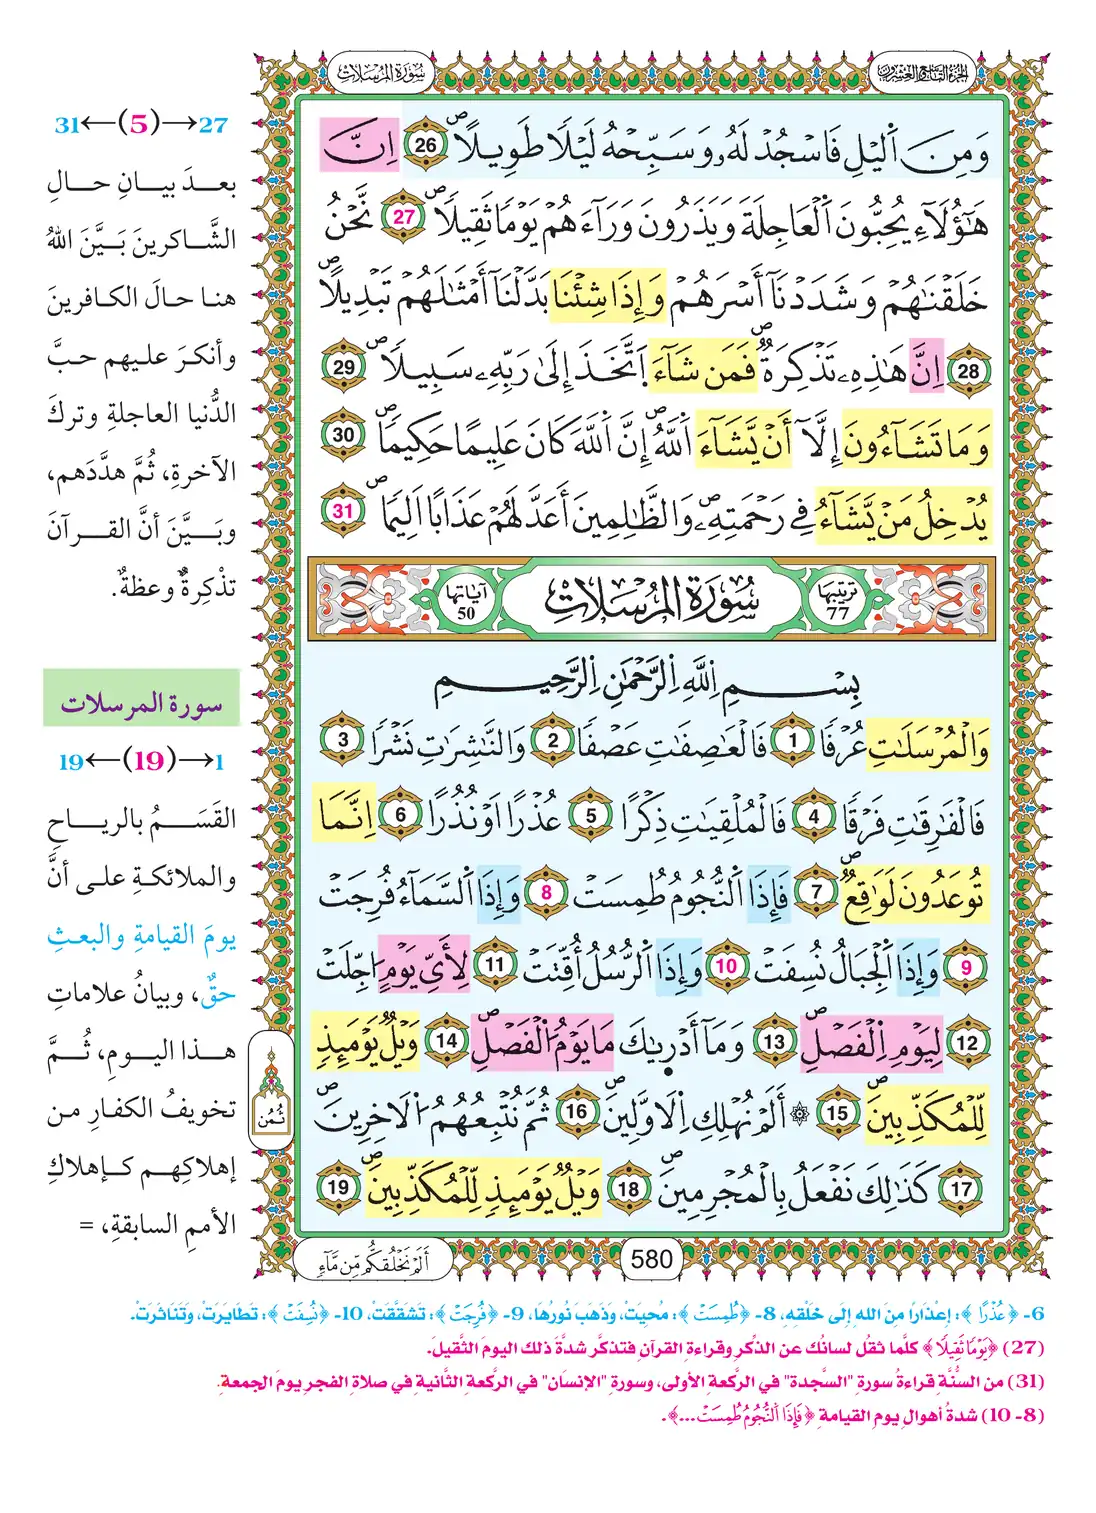 الجزء التاسع والعشرون
سورة المرسلات
وَمِنَ اَ۬ليْلِ فَاسْجُدْ لَهُۥ وَسَبِّحْهُ لَيْلٗا طَوِيلًا 26 اِنَّ
هَٰٓؤُلَآءِ يُحِبُّونَ اَ۬لْعَاجِلَةَ وَيَذَرُونَ وَرَآءَهُمْ يَوْمٗا ثَقِيلٗا 27 نَّحْنُ
خَلَقْنَٰهُمْ وَشَدَدْنَآ أَسْرَهُمْ وَإِذَا شِئْنَا بَدَّلْنَآ أَمْثَٰلَهُمْ تَبْدِيلًا
28 اِنَّ هَٰذِهِۦ تَذْكِرَةٞ فَمَن شَآءَ اَ۪تَّخَذَ إِلَىٰ رَبِّهِۦ سَبِيلٗا 29
وَمَا تَشَآءُونَ إِلَّآ أَنْ يَّشَآءَ اَ۬للَّهُ إِنَّ اَ۬للَّهَ كَانَ عَلِيمًا حَكِيمٗا 30
يُدْخِلُ مَنْ يَّشَآءُ فِي رَحْمَتِهِۦ وَالظَّٰلِمِينَ أَعَدَّ لَهُمْ عَذَابًا اَلِيمٗا 31
ترتيبها 77 سورة المرسلات آياتها 50
بِسْمِ اِ۬للَّهِ اِ۬لرَّحْمَٰنِ اِ۬لرَّحِيمِ
وَالْمُرْسَلَٰتِ عُرْفٗا 1 فَالْعَٰصِفَٰتِ عَصْفٗا 2 وَالنَّٰشِرَٰتِ نَشْرٗا 3
فَالْفَٰرِقَٰتِ فَرْقٗا 4 فَالْمُلْقِيَٰتِ ذِكْرًا 5 عُذْرًا اَوْ نُذُرًا 6 اِنَّمَا
تُوعَدُونَ لَوَٰقِعٞ 7 فَإِذَا اَ۬لنُّجُومُ طُمِسَتْ 8 وَإِذَا اَ۬لسَّمَآءُ فُرِجَتْ
9 وَإِذَا اَ۬لْجِبَالُ نُسِفَتْ 10 وَإِذَا اَ۬لرُّسُلُ أُقِّتَتْ 11 لِأَيِّ يَوْمٍ اُجِّلَتْ
12 لِيَوْمِ اِ۬لْفَصْلِ 13 وَمَآ أَدْر۪ىٰكَ مَا يَوْمُ اُ۬لْفَصْلِ 14 وَيْلٞ يَوْمَئِذٖ
لِّلْمُكَذِّبِينَ 15 ۞ أَلَمْ نُهْلِكِ اِ۬لَاوَّلِينَ 16 ثُمَّ نُتْبِعُهُمُ اُ۬لَاخِرِينَ
17 كَذَٰلِكَ نَفْعَلُ بِالْمُجْرِمِينَ 18 وَيْلٞ يَوْمَئِذٖ لِّلْمُكَذِّبِينَ 19
ثُمُن
580
أَلَمْ نَخْلُقكُّم مِّن مَّآءٖ
27→(5)←31
بعدَ بيانِ حالِ
الشَّاكرينَ بَيَّنَ اللهُ
هنا حالَ الكافرينَ
وأنكرَ عليهم حبَّ
الدُّنيا العاجلةِ وتركَ
الآخرةِ، ثُمَّ هدَّدَهم،
وبَيَّنَ أنَّ القرآنَ
تذْكِرةٌ وعظةٌ.
سورة المرسلات
1→(19)←19
القَسَمُ بالرياحِ
والملائكةِ على أنَّ
يومَ القيامةِ والبعثِ
حقٌ، وبيانُ علاماتِ
هذا اليومِ، ثُمَّ
تخويفُ الكفارِ من
إهلاكِهم كإهلاكِ
الأممِ السابقةِ، =
6- ﴿عُذْرًا﴾: إعْذارًا مِنَ اللهِ إلَى خَلْقِهِ، 8- ﴿طُمِسَتْ﴾: مُحِيَتْ، وَذَهَبَ نُورُهَا، 9- ﴿فُرِجَتْ﴾: تَشَقَّقَتْ، 10- ﴿نُسِفَتْ﴾: تَطَايَرَتْ، وَتَنَاثَرَتْ.
(27) ﴿يَوْمًا ثَقِيلًا﴾ كلَّما ثقُل لسانُك عن الذِّكرِ وقراءةِ القرآنِ فتذكَّر شدةَ ذلك اليومَ الثَّقيلَ.
(31) من السُّنَّةِ قراءةُ سورةِ "السَّجدة" في الرَّكعةِ الأولى، وسورةِ "الإنسَان" في الرَّكعةِ الثَّانيةِ في صلاةِ الفجرِ يومَ الجمعةِ.
(8- 10) شدةُ أهوالِ يومِ القيامةِ ﴿فَإِذَا النُّجُومُ طُمِسَتْ...﴾.